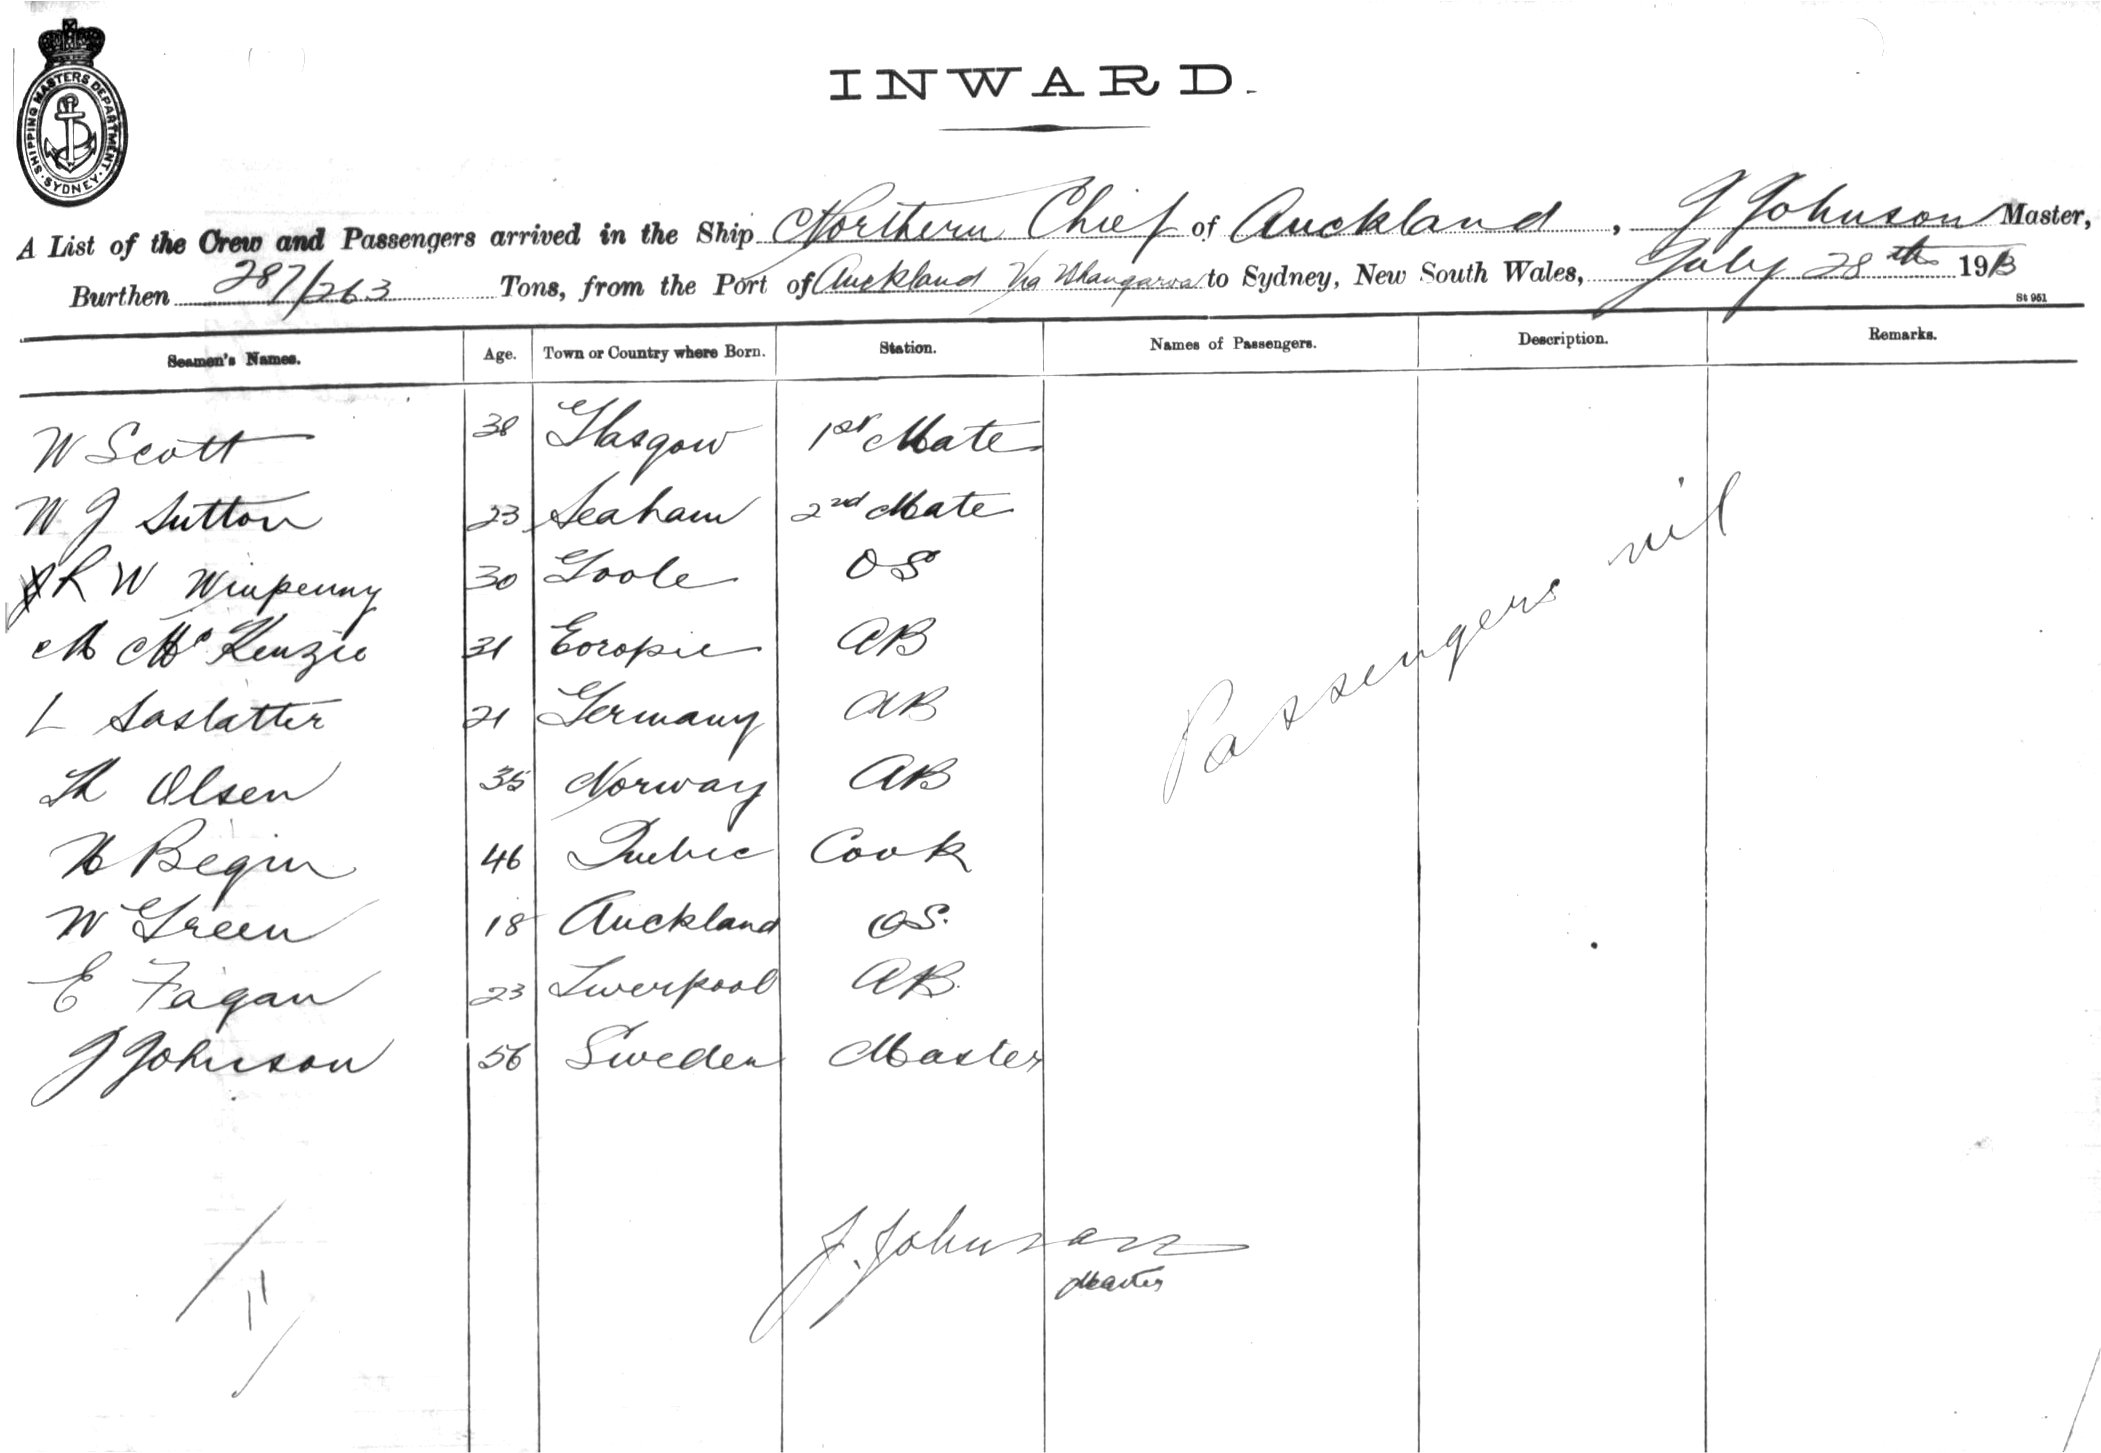 SHIPPING MASTERS DEPARTMENT. SYDNEY.
INWARD.
A List of the Crew and Passengers arrived in the Ship Northern Chief of Auckland, J Johnson Master,
Burthen 287/263 Tons, from the Port of Auckland Via Whangaroa to Sydney, New South Wales, July 28th 1913
St 961
Seamen's Names. Age. Town or Country where Born. Station. Names of Passengers. Description. Remarks.
W Scott 38 Glasgow 1st Mate
W J Sutton 23 Seaham 2nd Mate
R W Winpenny 30 Goole OS
M McKenzie 31 Eoropie AB
L Saslatter 21 Germany AB
Th Olsen 35 Norway AB
H Begin 46 Quebec Cook
W Green 18 Auckland OS.
E Fagan 23 Liverpool AB.
J Johnson 56 Sweden Master
Passengers nil
J. Johnson
Master
11